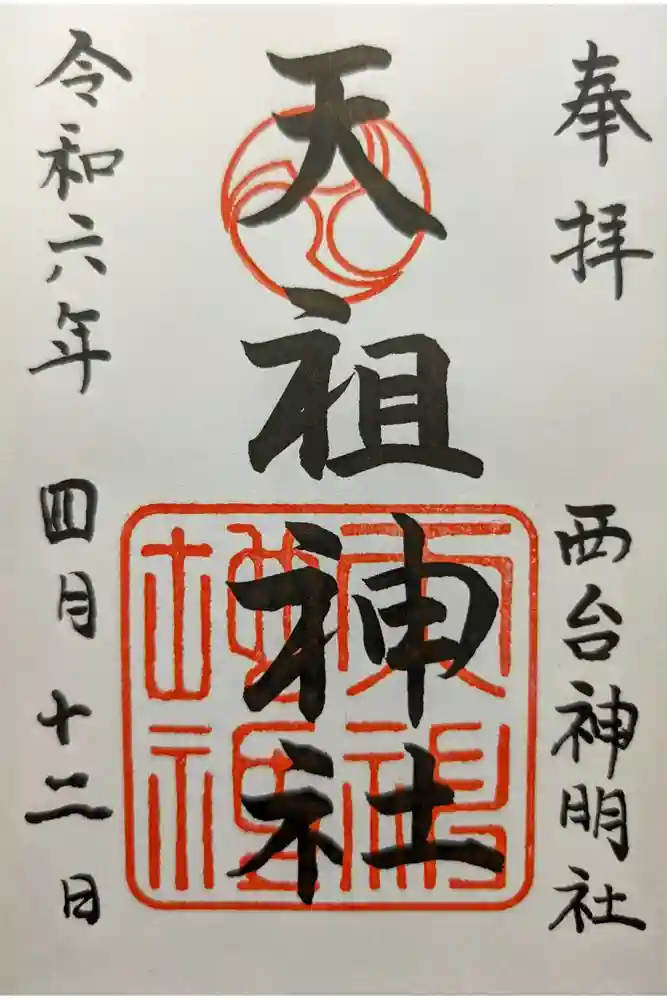 奉拝
西台神明社
天祖神社
令和六年
四月十二日